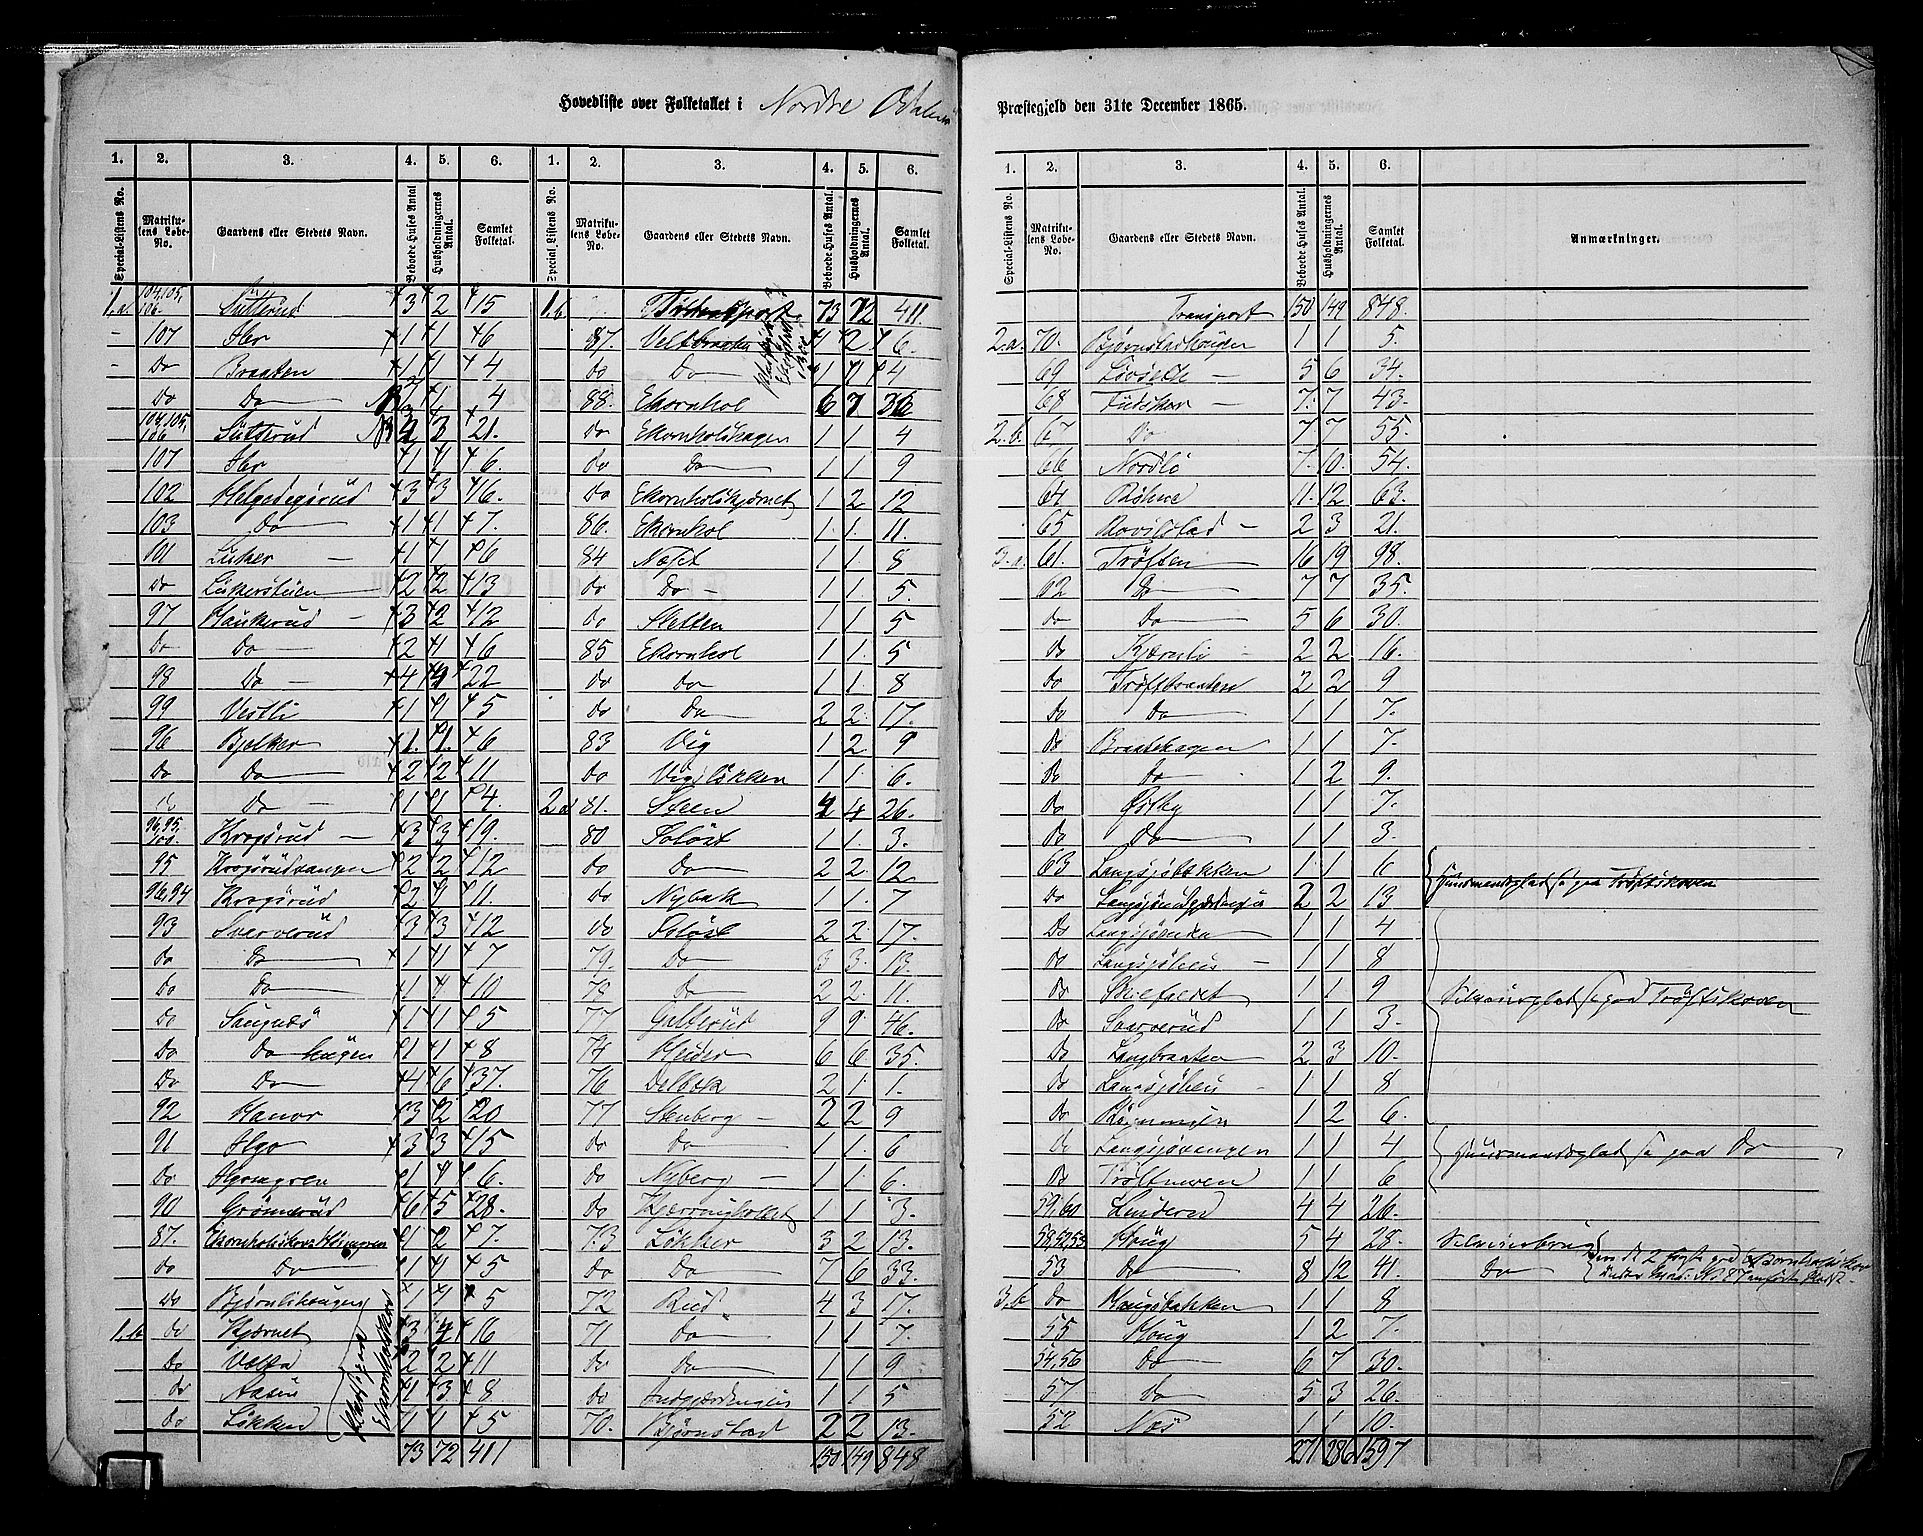 Hovedliste over Folketallet i Nordre Odalen
Præstegjeld den 31te December 1865.
1. 2. 3. 4. 5. 6. 1. 2. 3. 4. 5. 6.
Special-Listens No. Matrikulens Løbe-No. Gaardens eller Stedets Navn. Beboede Huses Antal Husholdningernes Antal. Samlet Folketal.
Special-Listens No. Matrikulens Løbe-No. Gaardens eller Stedets Navn. Beboede Huses Antal Husholdningernes Antal. Samlet Folketal.
1.a. 104,105,106. Sütterüd 3 2 15
- 107 Hr 1 1 6
- Do Braaten 1 1 4
Do Do 1 4
104,105,106 Sütterüd 3 21.
107 Hr 1 1 6.
102 Helgedagsrüd 3 3 16.
103 Do 1 1 7.
101 Lüker 1 1 6
Do Lükerstüen 2 2 13
97 Haükerüd 3 2 12
Do Do 2 1 6
98 Do 4 4 22
99 Vestli 1 1 5
96 Bjelker 1. 1. 6
Do Do 2 2 11
Do Do 1 1 4.
96,95, Krogsrüd 3 3 19.
95 Krogsrüdvangen 2 2 12
96,94 Krogsrüd 2 11.
93 Sververüd 3 3 12
Do Do 1 1 7
Do Do 1 1 10
Do Sangnæs 1 1 5
Do Do haügen 1 1 8
Do Do 4 6 37.
92 Hanor 3 2 20
91 Algo 3 3 15
Do 1 1 6.
90 Grømerüd 6 5 28.
87. 1 2 7.
Do Do 1 1 5
Do Bjørnlihaügen 1 1 5
1.b Do Kjærnet 3 16
Do Vælta 2 2 11
Do Aasen 1 3 8
Do Løkken 1 1 5
Pladse paa Ekornholskov
73 72 411
1.b Transport 73 72 411.
87. Veltbraaten 1 2 6.
Do Do 1 1 4
88. Ekornhol 6 7 36
Do Ekornholshagen 1 1 4
Do Do 1 1. 9
Do Ekornholskjærnet 1 2 12
86. Ekornhol 1 1. 11.
84 Næst 1 1 8
Do Do 1 1. 5.
Do Sletten 1 1 5
85 Ekornhol 1 1. 5
Do Do 1 1. 8
Do Do 2 2. 17.
83 Vig 1 2 9
Do Vigsløkken 1 1. 6.
2 a 81. Steen 4 4 26.
80 Soløst 1 1. 3.
Do Do 2 2. 12
Do Nybak 1 1. 7
Do Soløst 2 2. 17.
79. Do 3 3. 13.
78 Do 2 2. 11.
77 Galterüd 9 9. 46.
74 Heder 6 6. 35.
76 Delbæk 2 1. 1.
77 Stenberg 2 2 9
Do Do 1 1. 6
Do Nyberg 1 1. 6.
Do 1 1 3.
73 Løkker 3 2 13.
Do Do 7 6 33.
72 Rüd 4 3 17.
71 Do 1 1 7.
Do Do 1 1 9
Do 1 1 5
70. Bjørnstad 2 2 13.
150 149 848
1. 2. 3. 4. 5. 6.
Special-Listens No. Matrikulens Løbe-No. Gaardens eller Stedets Navn. Beboede Huses Antal. Husholdningernes Antal. Samlet Folketal. Anmærkninger.
Transport 150 149 848.
2.a. 70. Bjørnstadhaügen 1 1 5.
69 Løvseth 5 6 34.
68 Füdskov 7 7 43.
2.b. 67 Do 7 7 55.
66 Nordlø 7. 10. 54.
64 Røhne 11. 12 63.
65 Rovilstad 2 3 21.
3.a. 61. Trøften 16 19 98.
62 Do 7 7 35.
Do Do 5 6 30.
Do Kjærnli 2 2 16.
Do Trøftbraaten 2 2 9
Do Do 1 1 7.
Do Braatehagen 1 1 7.
Do Do 1 2 9.
Do Østby 1 1 7.
Do Do 1 1 3.
63 Langsjøbækken 1 1 6
Do 2 2 13
Huusmandsplads paa Trøftskoven
Do Langsjøenden 1 1 4
Do Langsjøheu 1 1 8
Do Skilfaldet 1 1 9 Selveierplads paa Trøftskoven
Do Snarverüd 1 1 3.
Do Langbraaten 2 3 10.
Do Langsjøheu 1 1 8
Do Rømmingen 1 2 6.
Do Langsjøvangen 1 1 4 Huusmandsplads paa Do
Do Trøftmoen 1 1 6
59,60 Linderud 4 4 26.
58,52,53 Haüg 5 4 28. Selveierbrug
53 Do 8 12 41. Do
3.b Do Haugsbakken 1 1 8
55 Haüg 1 2 7.
54,56 Do 6 7 30.
57 Do 5 3 26.
52 Næs 1 1 10.
271 286 1597